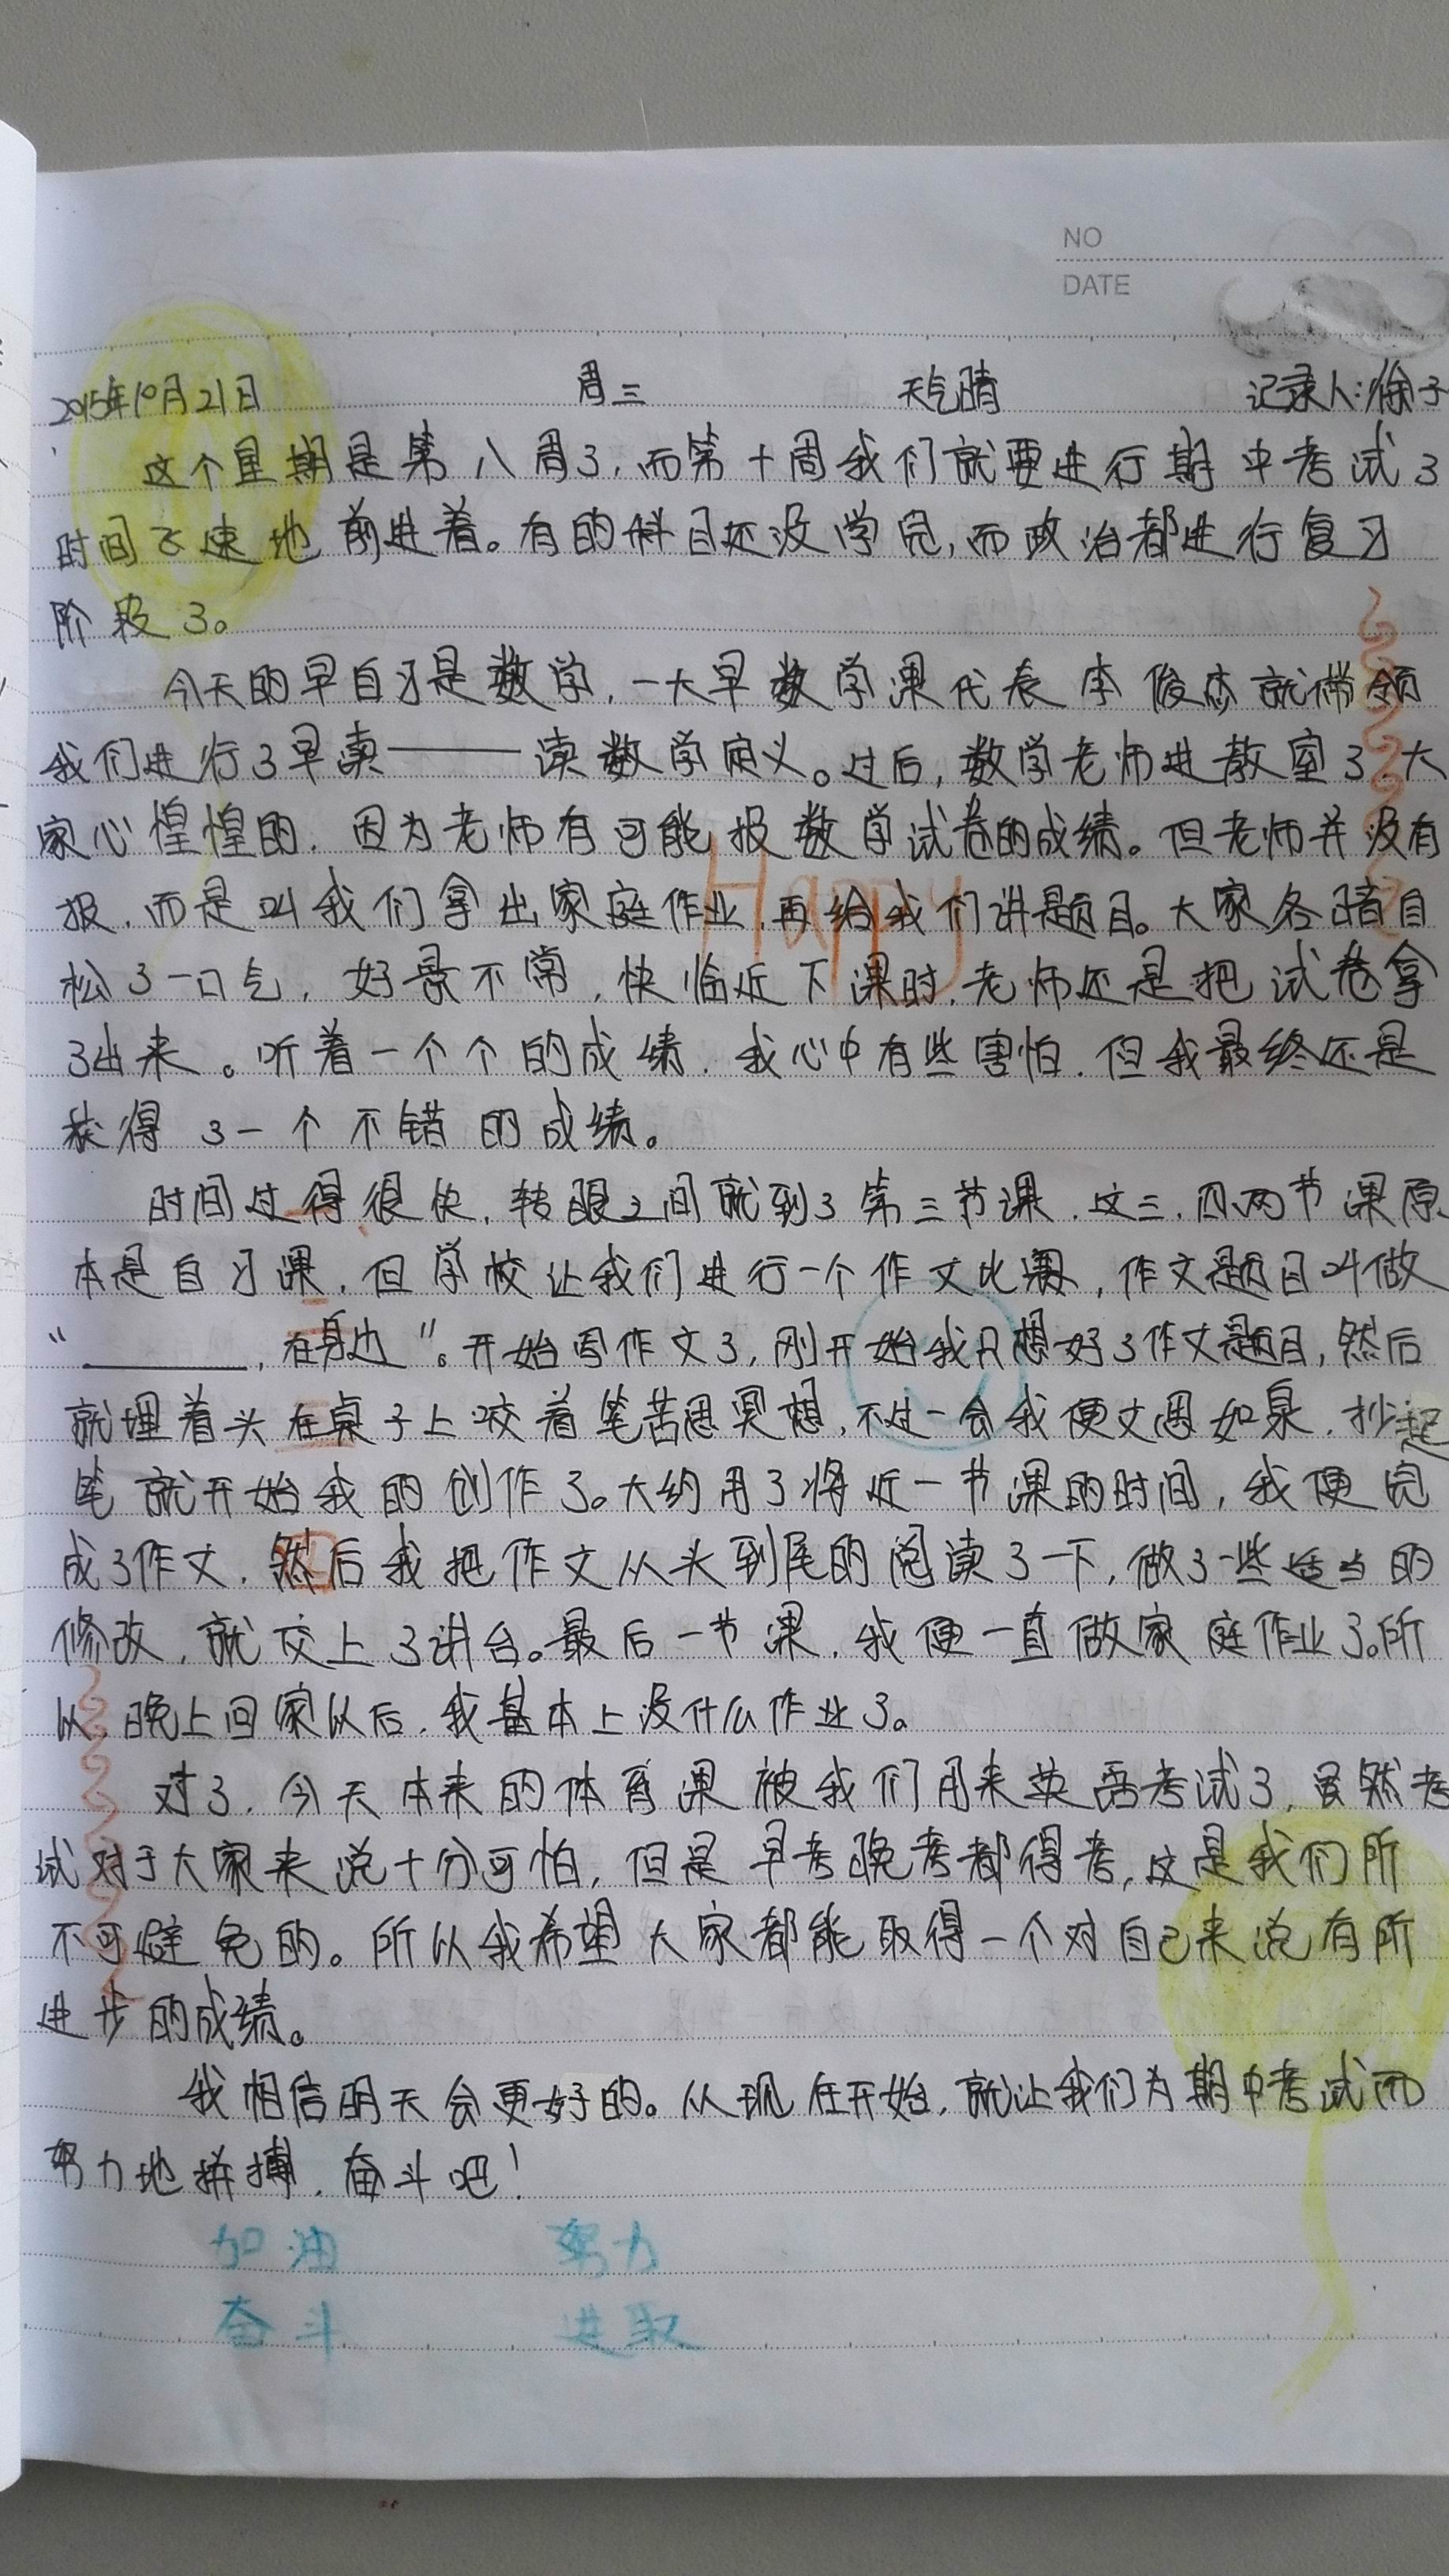 NO
DATE
2015年10月21日 周三 天气晴 记录人:徐子
这个星期是第八周了,而第十周我们就要进行期中考试了
时间飞速地前进着。有的科目还没学完,而政治都进行复习
阶段了。
今天的早自习是数学,一大早数学课代表李俊杰就带领
我们进行了早读——读数学定义。过后,数学老师进教室了,大
家心惶惶的,因为老师有可能报数学试卷的成绩。但老师并没有
报,而是叫我们拿出家庭作业,再给我们讲题目。大家各暗自
松了一口气,好景不常,快临近下课时,老师还是把试卷拿
了出来。听着一个个的成绩,我心中有些害怕,但我最终还是
获得了一个不错的成绩。
时间过得很快,转眼之间就到了第三节课,这三,四两节课原
本是自习课,但学校让我们进行一个作文比赛,作文题目叫做
“________,在身边”。开始写作文了,刚开始我只想好了作文题目,然后
就埋着头在桌子上咬着笔苦思冥想,不过一会我便文思如泉,抄起
笔就开始我的创作了。大约用了将近一节课的时间,我便完
成了作文,然后我把作文从头到尾的阅读了一下,做了一些适当的
修改,就交上了讲台。最后一节课,我便一直做家庭作业了。所
以,晚上回家以后,我基本上没什么作业了。
对了,今天本来的体育课被我们用来英语考试了,虽然考
试对于大家来说十分可怕,但是早考晚考都得考,这是我们所
不可避免的。所以我希望大家都能取得一个对自己来说有所
进步的成绩。
我相信明天会更好的。从现在开始,就让我们为期中考试而
努力地拼搏,奋斗吧!
加油 努力
奋斗 进取
Happy